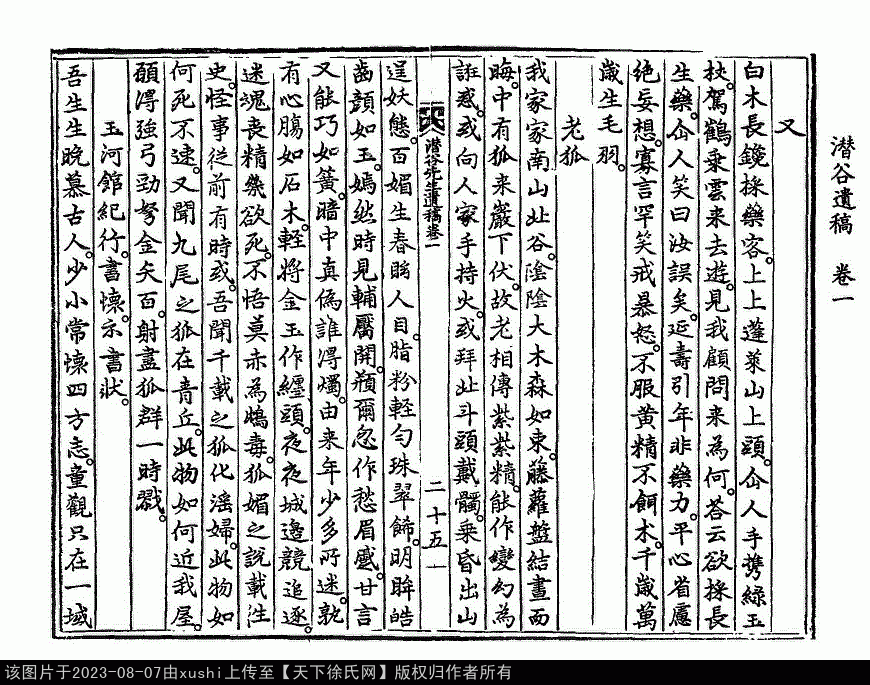 潜谷遺稿 卷一
又
白木長鑱採藥客。上上蓬萊山上頭。仚人手携綠玉
杖。駕鶴乘雲来去遊。見我顧問来為何。荅云欲採長
生藥。仚人笑曰汝誤矣。延壽引年非藥力。平心省慮
絶妄想。寡言罕笑戒暴怒。不服黄精不餌朮。千歲萬
歲生毛羽。
老狐
我家家南山北谷。陰陰大木森如束。藤蘿盤結晝而
晦。中有狐来巖下伏。故老相傳紫紫精。能作變幻為
誑惑。或向人家手持火。或拜北斗頭戴髑。乘昏出山
潜谷先生遺稿卷一
二十五
逞妖態。百媚生春眩人目。脂粉軽勻珠翠餙。明眸皓
齒顔如玉。嫣然時見輔靨開。頩爾忽作愁眉蹙。甘言
又能巧如簧。暗中真偽誰淂燭。由来年少多所迷。孰
有心膓如石木。軽將金玉作纒頭。夜夜城邊競追逐。
迷魂喪精樂欲死。不悟莫赤為鴆毒。狐媚之說載注
史。怪事従前有時或。吾聞千載之狐化滛婦。此物如
何死不速。又聞九尾之狐在青丘。此物如何近我屋。
願淂強弓勁弩金矢百。射盡狐群一時戮。
玉河館紀行。書懷。示書狀。
吾生生晚慕古人。少小常懷四方志。童觀只在一域
该图片于2023-08-07由xushi上传至【天下徐氏网】版权归作者所有